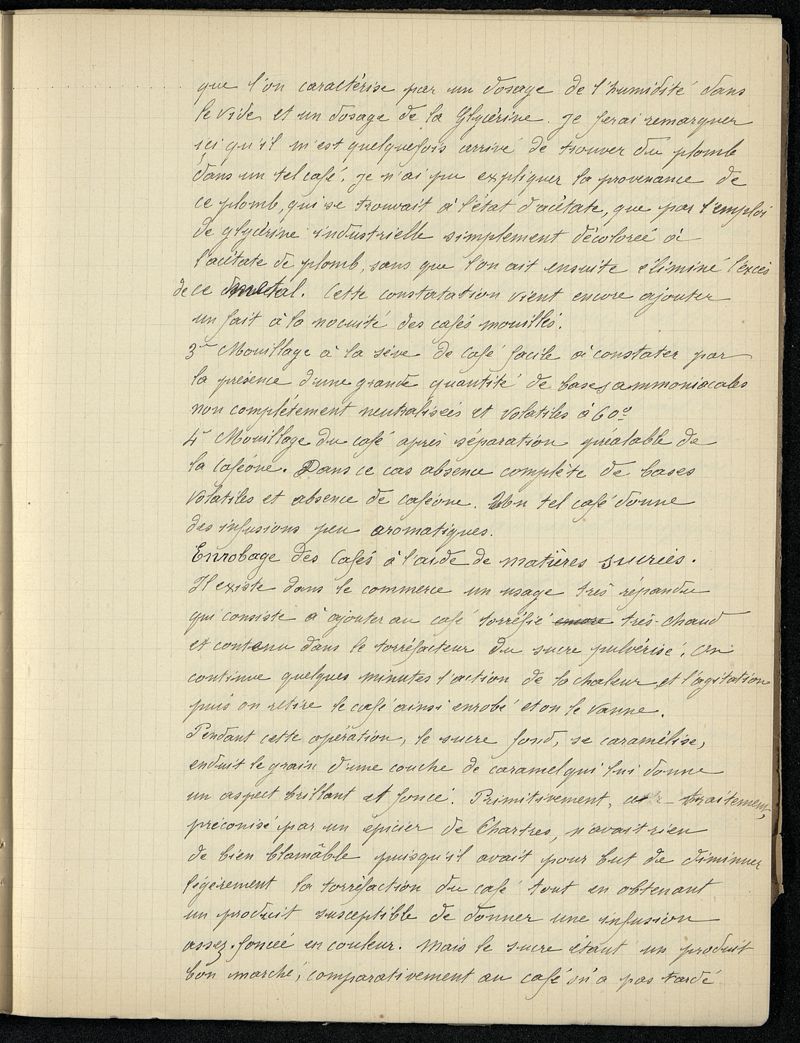 que l'on caractérise par un dosage de l'humidité dans
le vide et un dosage de la Glycérine. Je ferai remarquer
ici qu'il m'est quelquefois arrivé de trouver du plomb
dans un tel café. Je n'ai pu expliquer la provenance de
ce plomb, qui se trouvait à l'état d'acétate, que par l'emploi
de glycérine industrielle simplement décolorée à
l'acétate de plomb, sans que l'on ait ensuite éliminé l'excès
de ce métal. Cette constatation vient encore ajouter
un fait à la nocuité des cafés mouillés.
3° Mouillage à la sève de café facile à constater par
la présence d'une grande quantité de bases ammoniacales
non complètement neutralisées et volatiles à 60°
4° Mouillage du café après séparation préalable de
la caféone. Dans ce cas absence complète de bases
volatiles et absence de caféone. Un tel café donne
des infusions peu aromatiques.
Enrobage des Cafés à l'aide de matières sucrées.
Il existe dans le commerce un usage très répandu
qui consiste à ajouter au café torréfié encore très chaud
et contenu dans le torréfacteur du sucre pulvérisé. On
continue quelques minutes l'action de la chaleur et l'agitation
puis on retire le café ainsi enrobé et on le vanne.
Pendant cette opération, le sucre fond, se caramélise,
enduit le grain d'une couche de caramel qui lui donne
un aspect brillant et foncé. Primitivement, ce traitement,
préconisé par un épicier de Chartres, n'avait rien
de bien blamâble puisqu'il avait pour but de diminuer
légèrement la torréfaction du café tout en obtenant
un produit susceptible de donner une infusion
assez foncée en couleur. Mais le sucre étant un produit
bon marché, comparativement au café n'a pas tardé